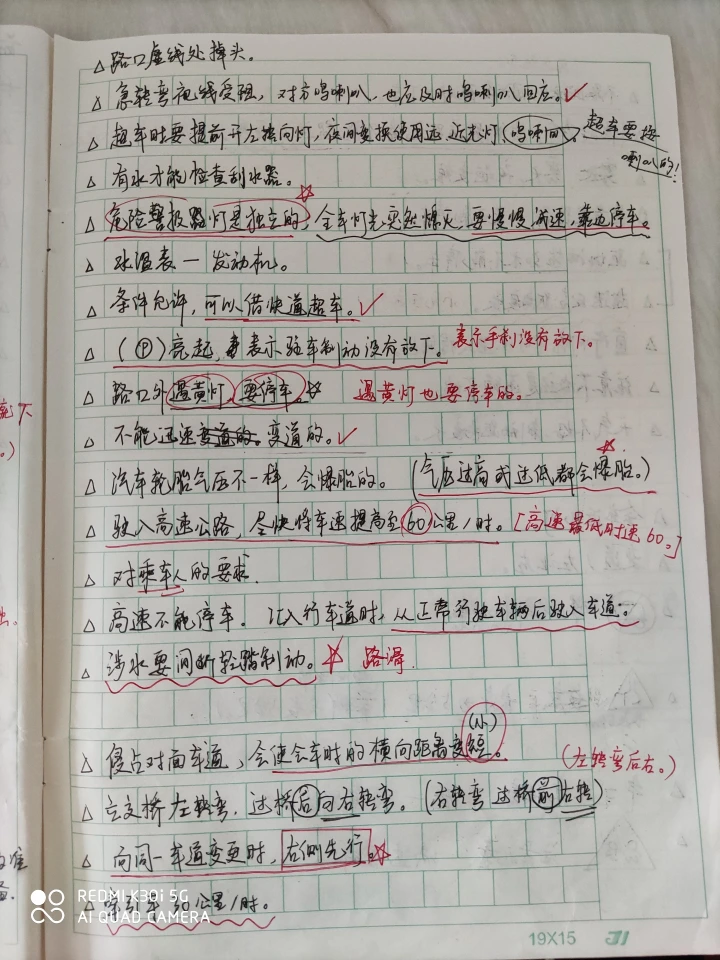 △路口虚线处掉头。
△急转弯视线受阻，对方鸣喇叭，也应及时鸣喇叭回应。✓
△超车时要提前开左转向灯，夜间变换使用远近光灯，鸣喇叭。超车要按
喇叭的！
△有水才能检查刮水器。
△危险警报器灯是独立的，全车灯光突然熄灭，要慢慢减速，靠边停车。
△水温表一发动机。
△条件允许，可以借快道超车。✓
△(P)亮起，表示驻车制动没有放下。表示手刹没有放下。
△路口外遇黄灯，要停车。☆ 遇黄灯也要停车的。
△不能迅速变道的。✓
△汽车轮胎气压不一样，会爆胎的。(气压过高或过低都会爆胎。)
△驶入高速公路，尽快将车速提高至60公里/时。[高速最低时速60。]
△对乘车人的要求.
△高速不能停车。汇入行车道时，从正常行驶车辆后驶入车道。
△涉水要间断轻踏制动。☆ 路滑.
(小)
△侵占对面车道，会使会车时的横向距离变短。
(左转弯后右。)
△立交桥左转弯，过桥后向右转弯。(右转弯过桥前右转)
△向同一车道变更时，右侧先行。☆
△牵引车 30公里/时。
REDMI K30i 5G
AI QUAD CAMERA
19X15